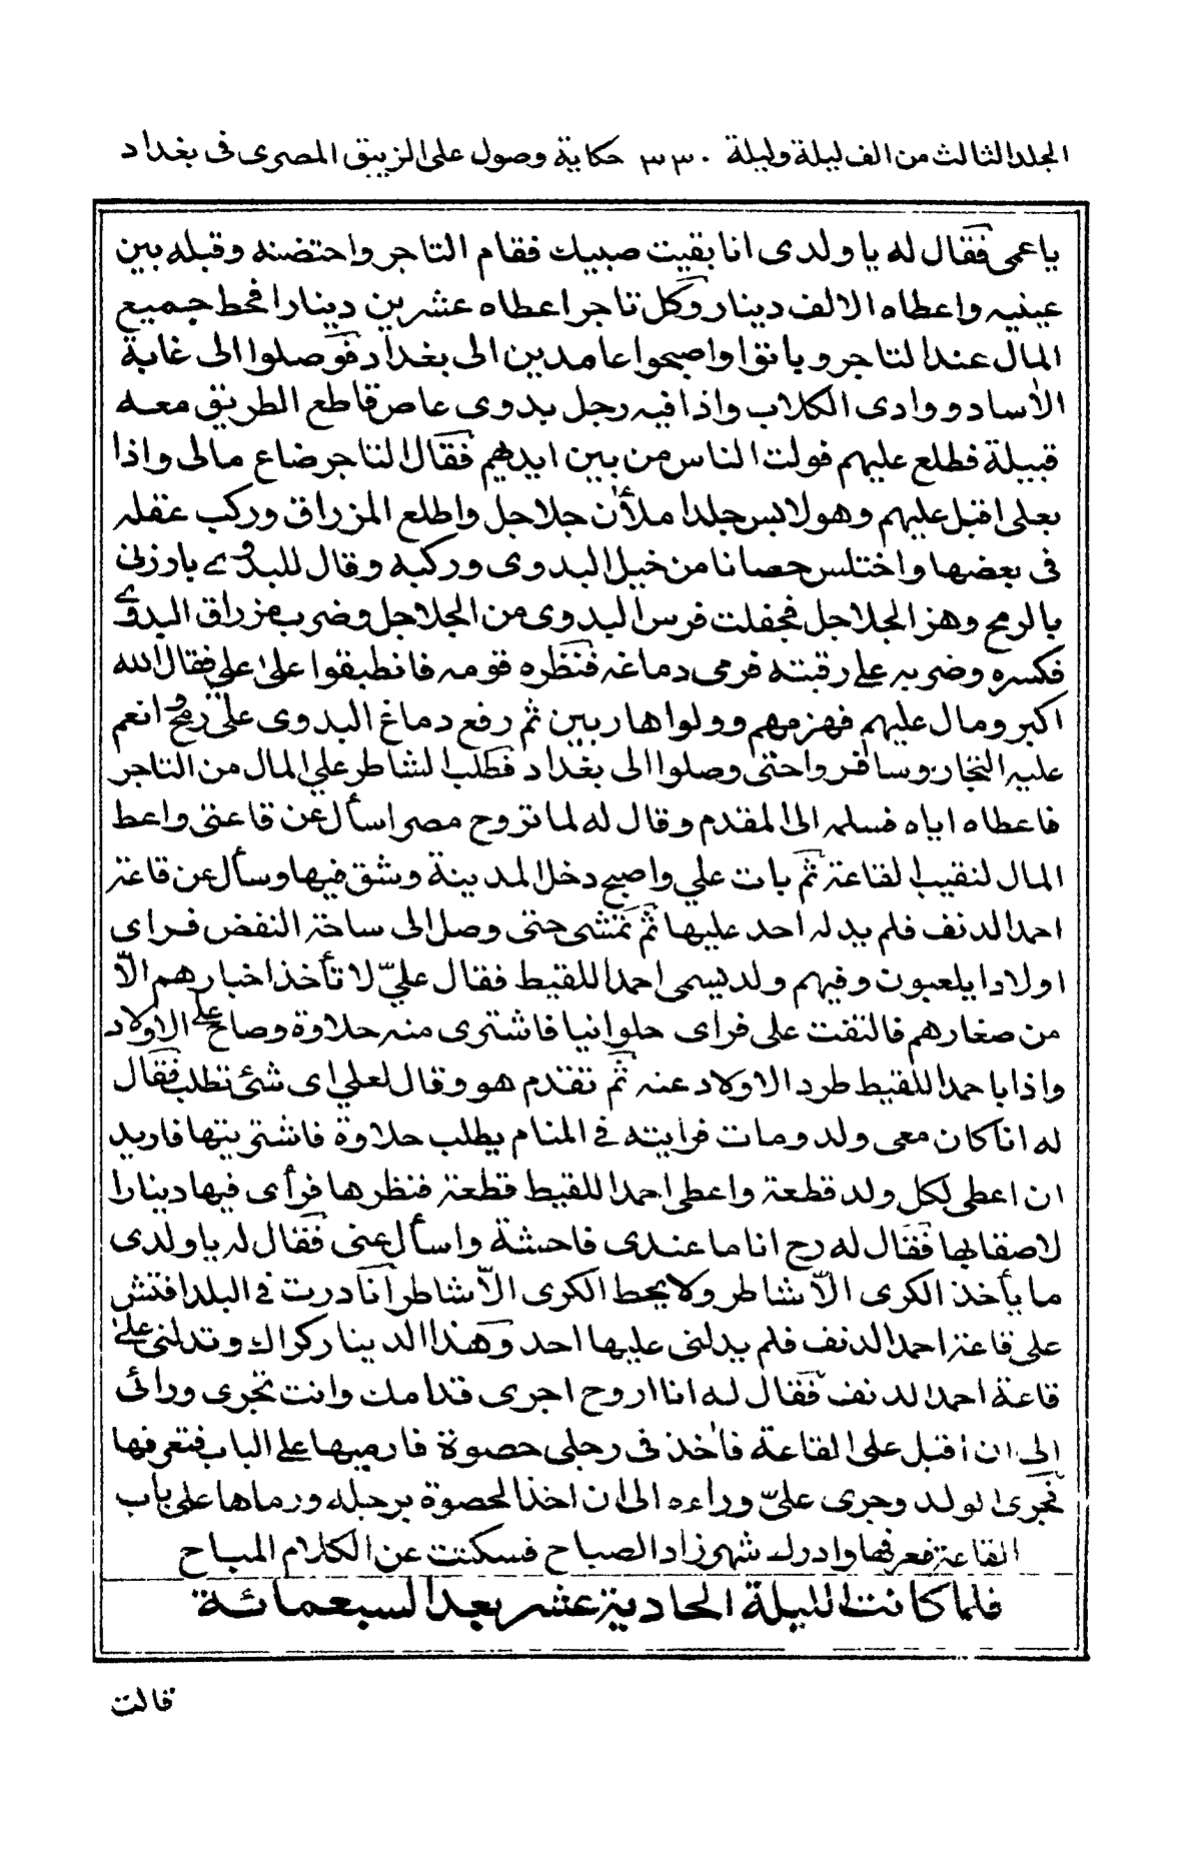 المجلد الثالث من الف ليلة وليلة ٣٣٠ حكاية وصول على الزيبق المصرى فى بغداد
يا عمى فقال له يا ولدى انا بقيت صبيك فقام التاجر واحتضنه وقبله بين
عينيه واعطاه الالف دينار وكل تاجر اعطاه عشرين دينارا فحط جميع
المال عند التاجر وباتوا واصبحوا عامدين الى بغداد فوصلوا الى غابة
الأساد ووادى الكلاب واذا فيه رجل بدوى عاص قاطع الطريق معه
قبيلة فطلع عليهم فولت الناس من بين ايديهم فقال التاجر ضاع مالى واذا
بعلى اقبل عليهم وهو لابس جلدا ملأن جلاجل واطلع المزراق وركب عقله
فى بعضها واختلس حصانا من خيل البدوى وركبه وقال للبدوى بارزنى
بالرمح وهز الجلاجل فجفلت فرس البدوى من الجلاجل وضرب مزراق البدوى
فكسره وضربه على رقبته فرمى دماغه فنظره قومه فانطبقوا على على فقال الله
اكبر ومال عليهم فهزمهم وولوا هاربين ثم رفع دماغ البدوى على رمح انعم
عليه التجار وسافروا حتى وصلوا الى بغداد فطلب الشاطر على المال من التاجر
فاعطاه اياه فسلمه الى المقدم وقال له لما تروح مصر اسأل عن قاعتى واعط
المال لنقيب القاعة ثم بات علي واصبح دخل المدينة وشق فيها وسأل عن قاعة
احمد الدنف فلم يدله احد عليها ثم تمشى حتى وصل الى ساحة النفض فراى
اولادا يلعبون وفيهم ولد يسمى احمد اللقيط فقال عليّ لا تأخذ اخبارهم الّا
من صغارهم فالتفت على فراى حلوانيا فاشترى منه حلاوة وصاح على الاولاد
واذا باحمد اللقيط طرد الاولاد عنه ثم تقدم هو وقال لعلي اى شئ تطلب فقال
له انا كان معى ولد ومات فرايته فى المنام يطلب حلاوة فاشتريتها فاريد
ان اعطى لكل ولد قطعة واعطى احمد اللقيط قطعة فنظرها فرأى فيها دينارا
لاصقا بها فقال له رح انا ما عندى فاحشة واسأل عنى فقال له يا ولدى
ما يأخذ الكرى الّا شاطر ولا يحط الكرى الّا شاطر انا درت فى البلد افتش
على قاعة احمد الدنف فلم يدلنى عليها احد وهذا الدينار كراك وتدلنى على
قاعة احمد الدنف فقال له انا اروح اجرى قدامك وانت تجرى ورائى
الى ان اقبل على القاعة فأخذ فى رجلى حصوة فارميها على الباب فتعرفها
فجرى الولد وجرى علىّ وراءه الى ان اخذ الحصوة برجله ورماها على باب
القاعة فعرفها وادرك شهرزاد الصباح فسكتت عن الكلام المباح
فلما كانت الليلة الحادية عشر بعد السبعمائة
قالت